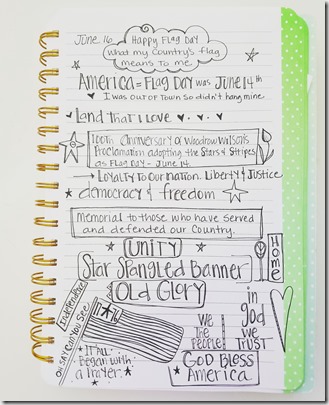 June 16
Happy Flag Day
What my Country's flag
means to me.
America = Flag Day was June 14th
I was out of town so didn't hang mine.
Land that I love
100th Anniversary of Woodrow Wilson's
Proclamation adopting the Stars & Stripes
as Flag Day - June 14.
Loyalty to our nation. Liberty & Justice
democracy & freedom
Memorial to those who have served
and defended our Country.
Unity
Home
Star Spangled Banner
Old Glory
Oh Say Can You See
we
the
People
in
god
we
TRUST
It all
Began with
a Prayer.
God Bless
America